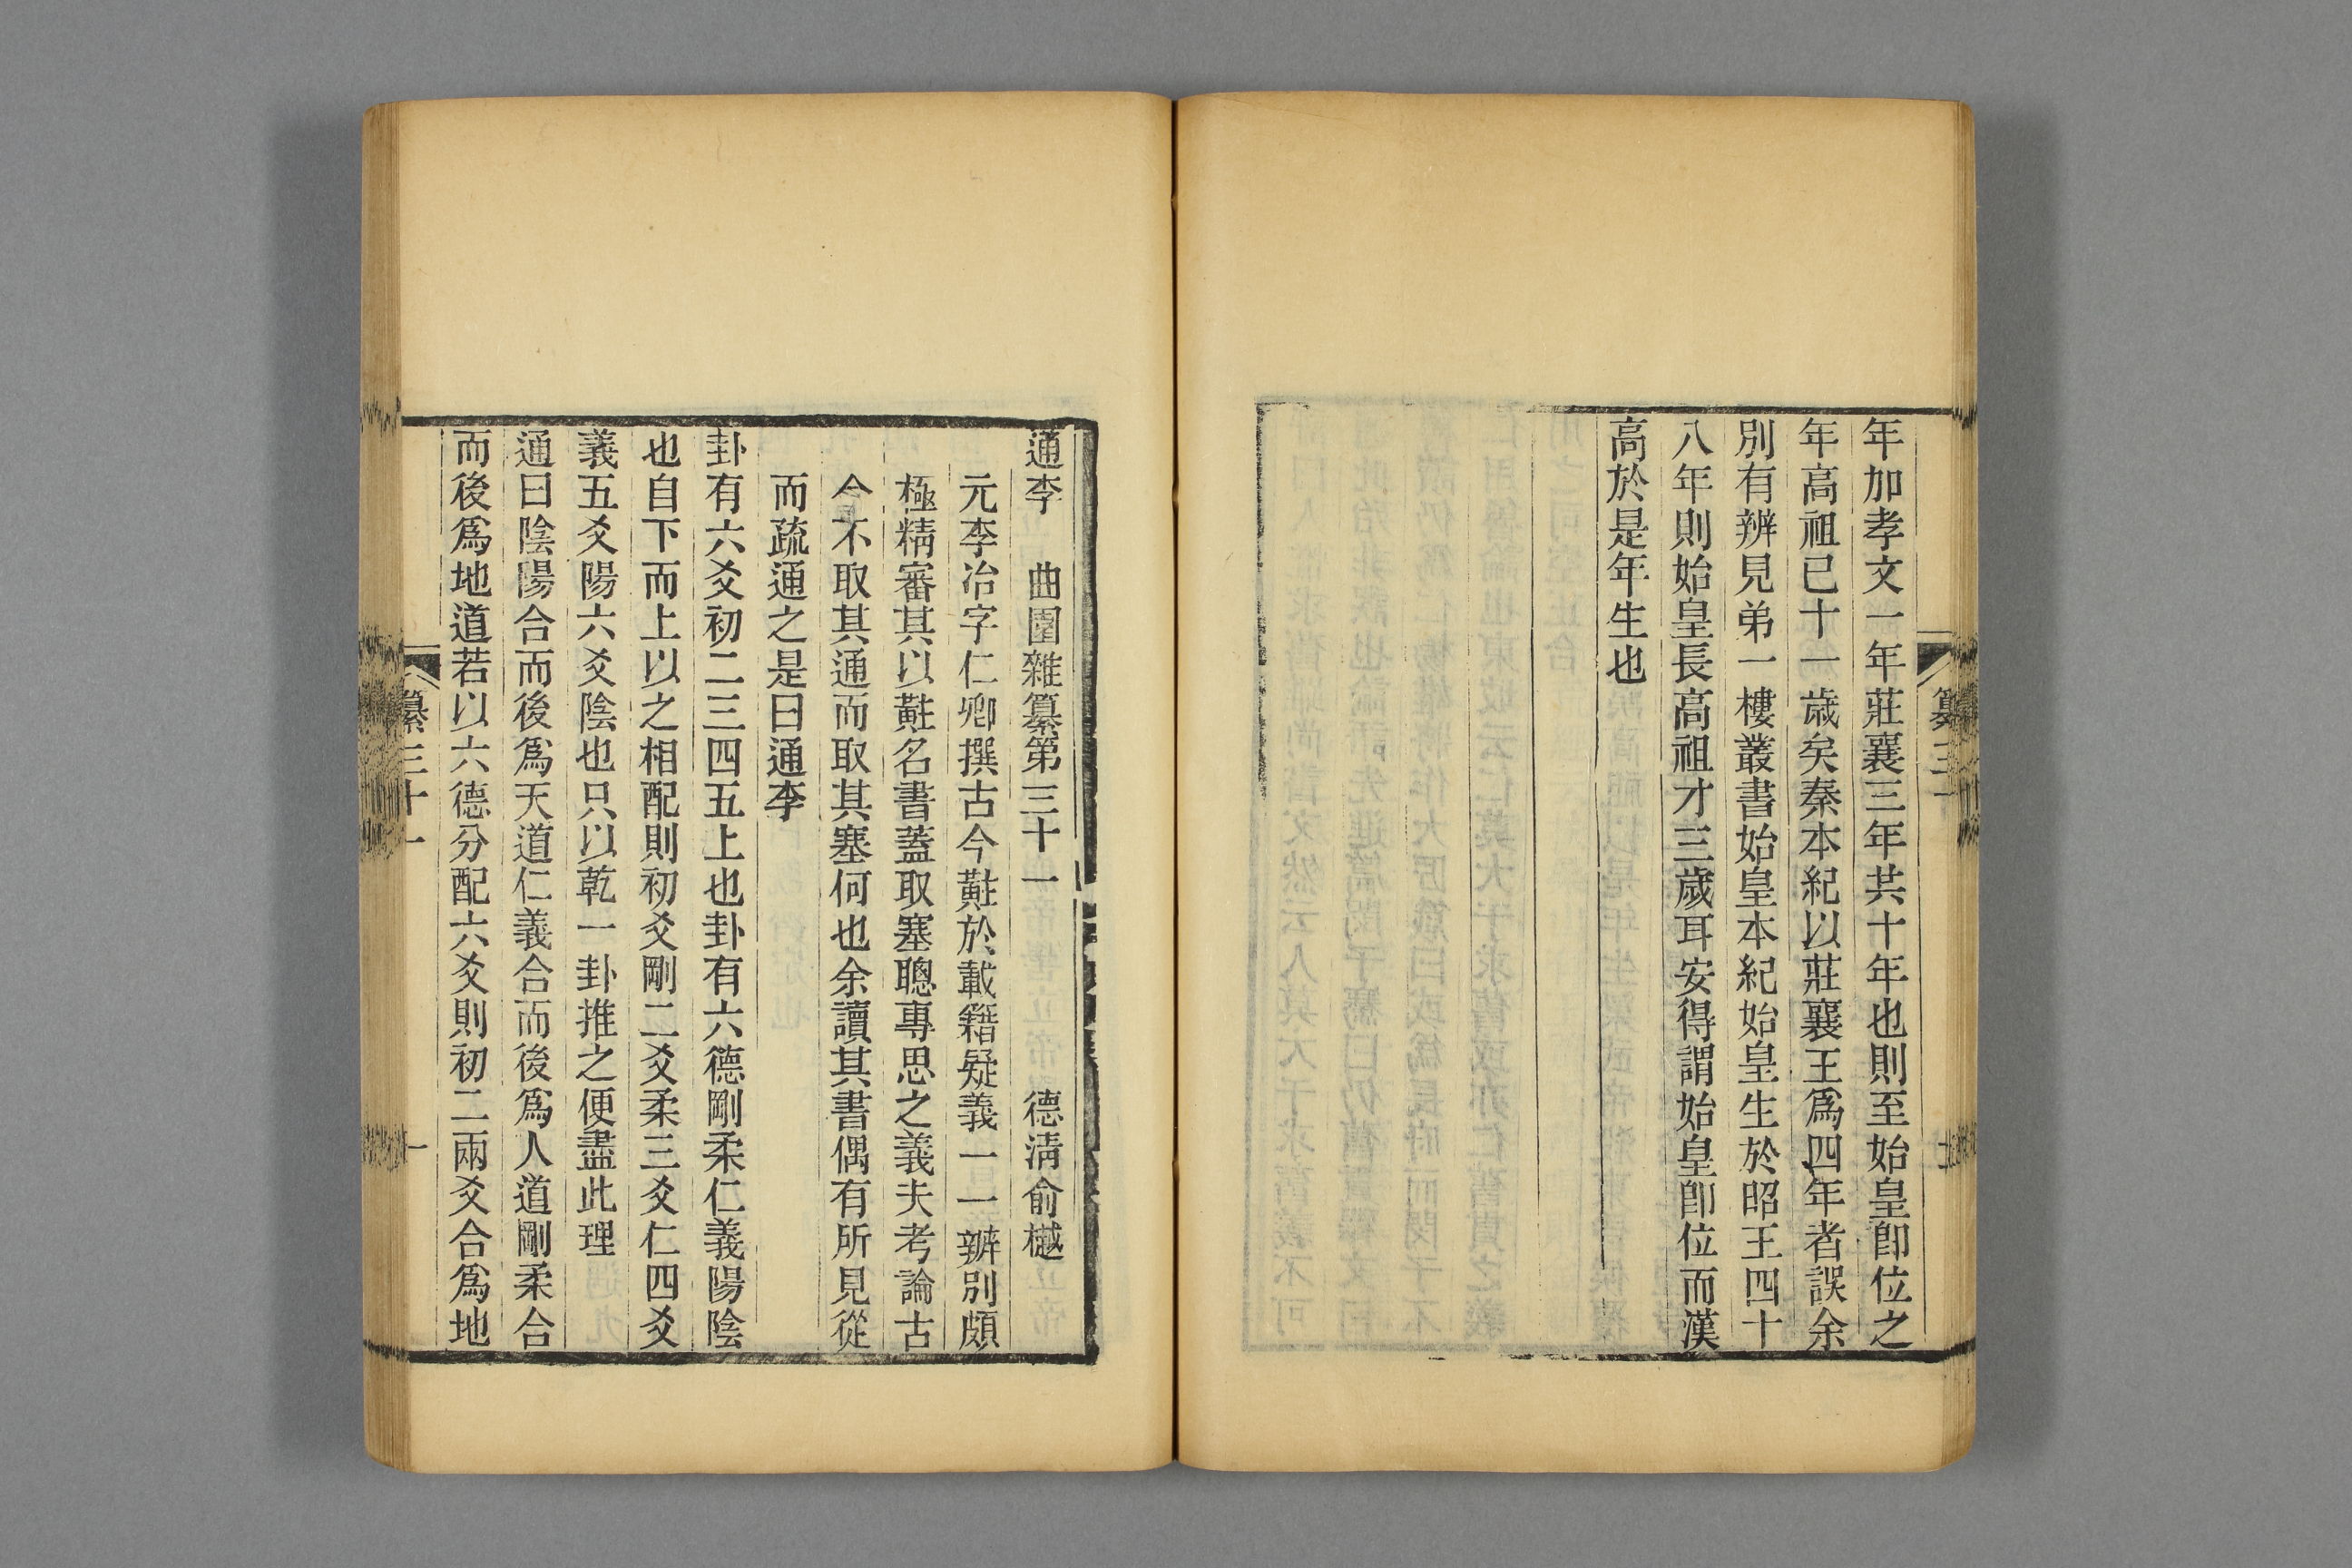 年加孝文一年莊襄三年共十年也則至始皇卽位之
年高祖已十一歲矣秦本紀以莊襄王爲四年者誤余
別有辨見弟一樓叢書始皇本紀始皇生於昭王四十
八年則始皇長高祖才三歲耳安得謂始皇卽位而漢
高於是年生也
通李　曲園雜纂第三十一　德清俞樾
元李冶字仁卿撰古今黈於載籍疑義一一辨別頗
極精審其以黈名書蓋取塞聰專思之義夫考論古
今不取其通而取其塞何也余讀其書偶有所見從
而疏通之是曰通李
卦有六爻初二三四五上也卦有六德剛柔仁義陽陰
也自下而上以之相配則初爻剛二爻柔三爻仁四爻
義五爻陽六爻陰也只以乾一卦推之便盡此理
通曰陰陽合而後爲天道仁義合而後爲人道剛柔合
而後爲地道若以六德分配六爻則初二兩爻合爲地
纂三十一
一